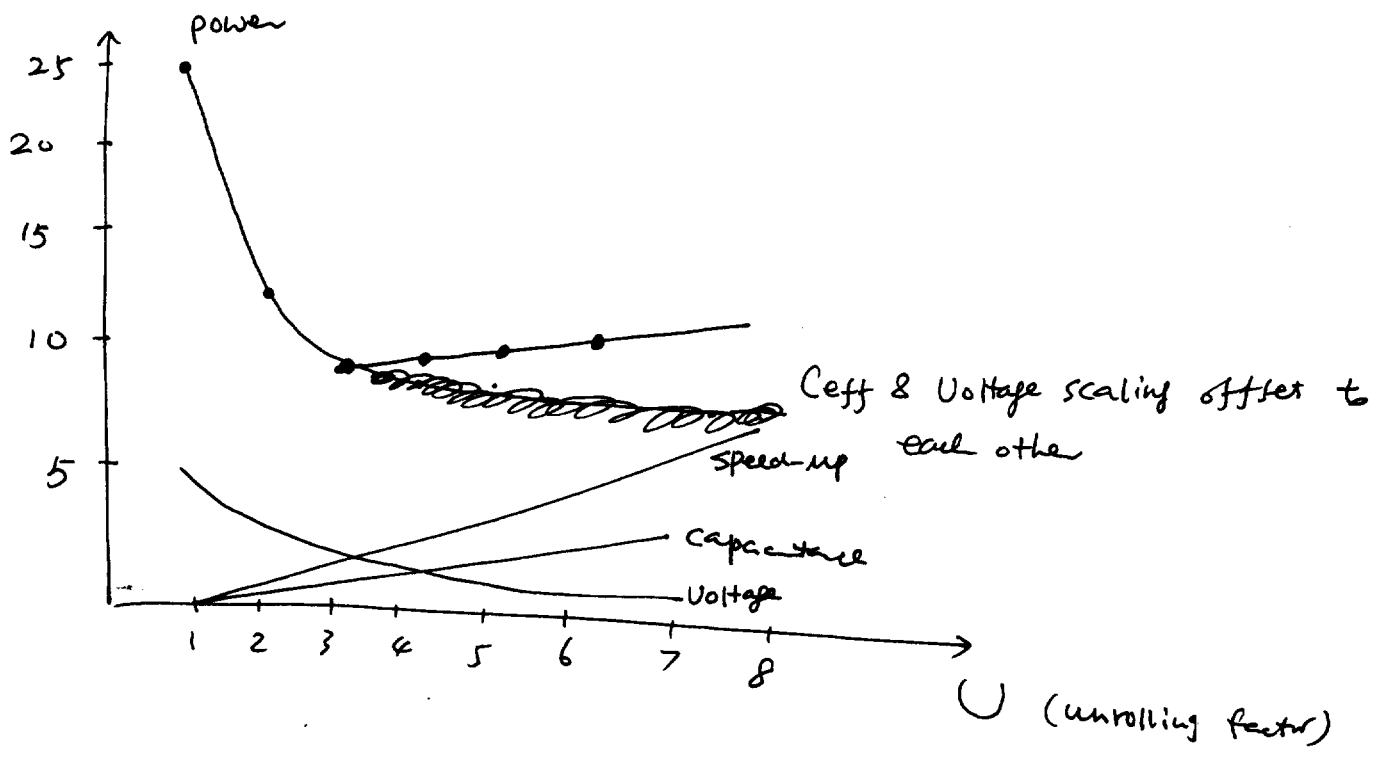 power
25
20
15
10
5
Ceff & Voltage scaling offset to
each other
speed-up
capacitance
Voltage
1 2 3 4 5 6 7 8
U (unrolling factor)